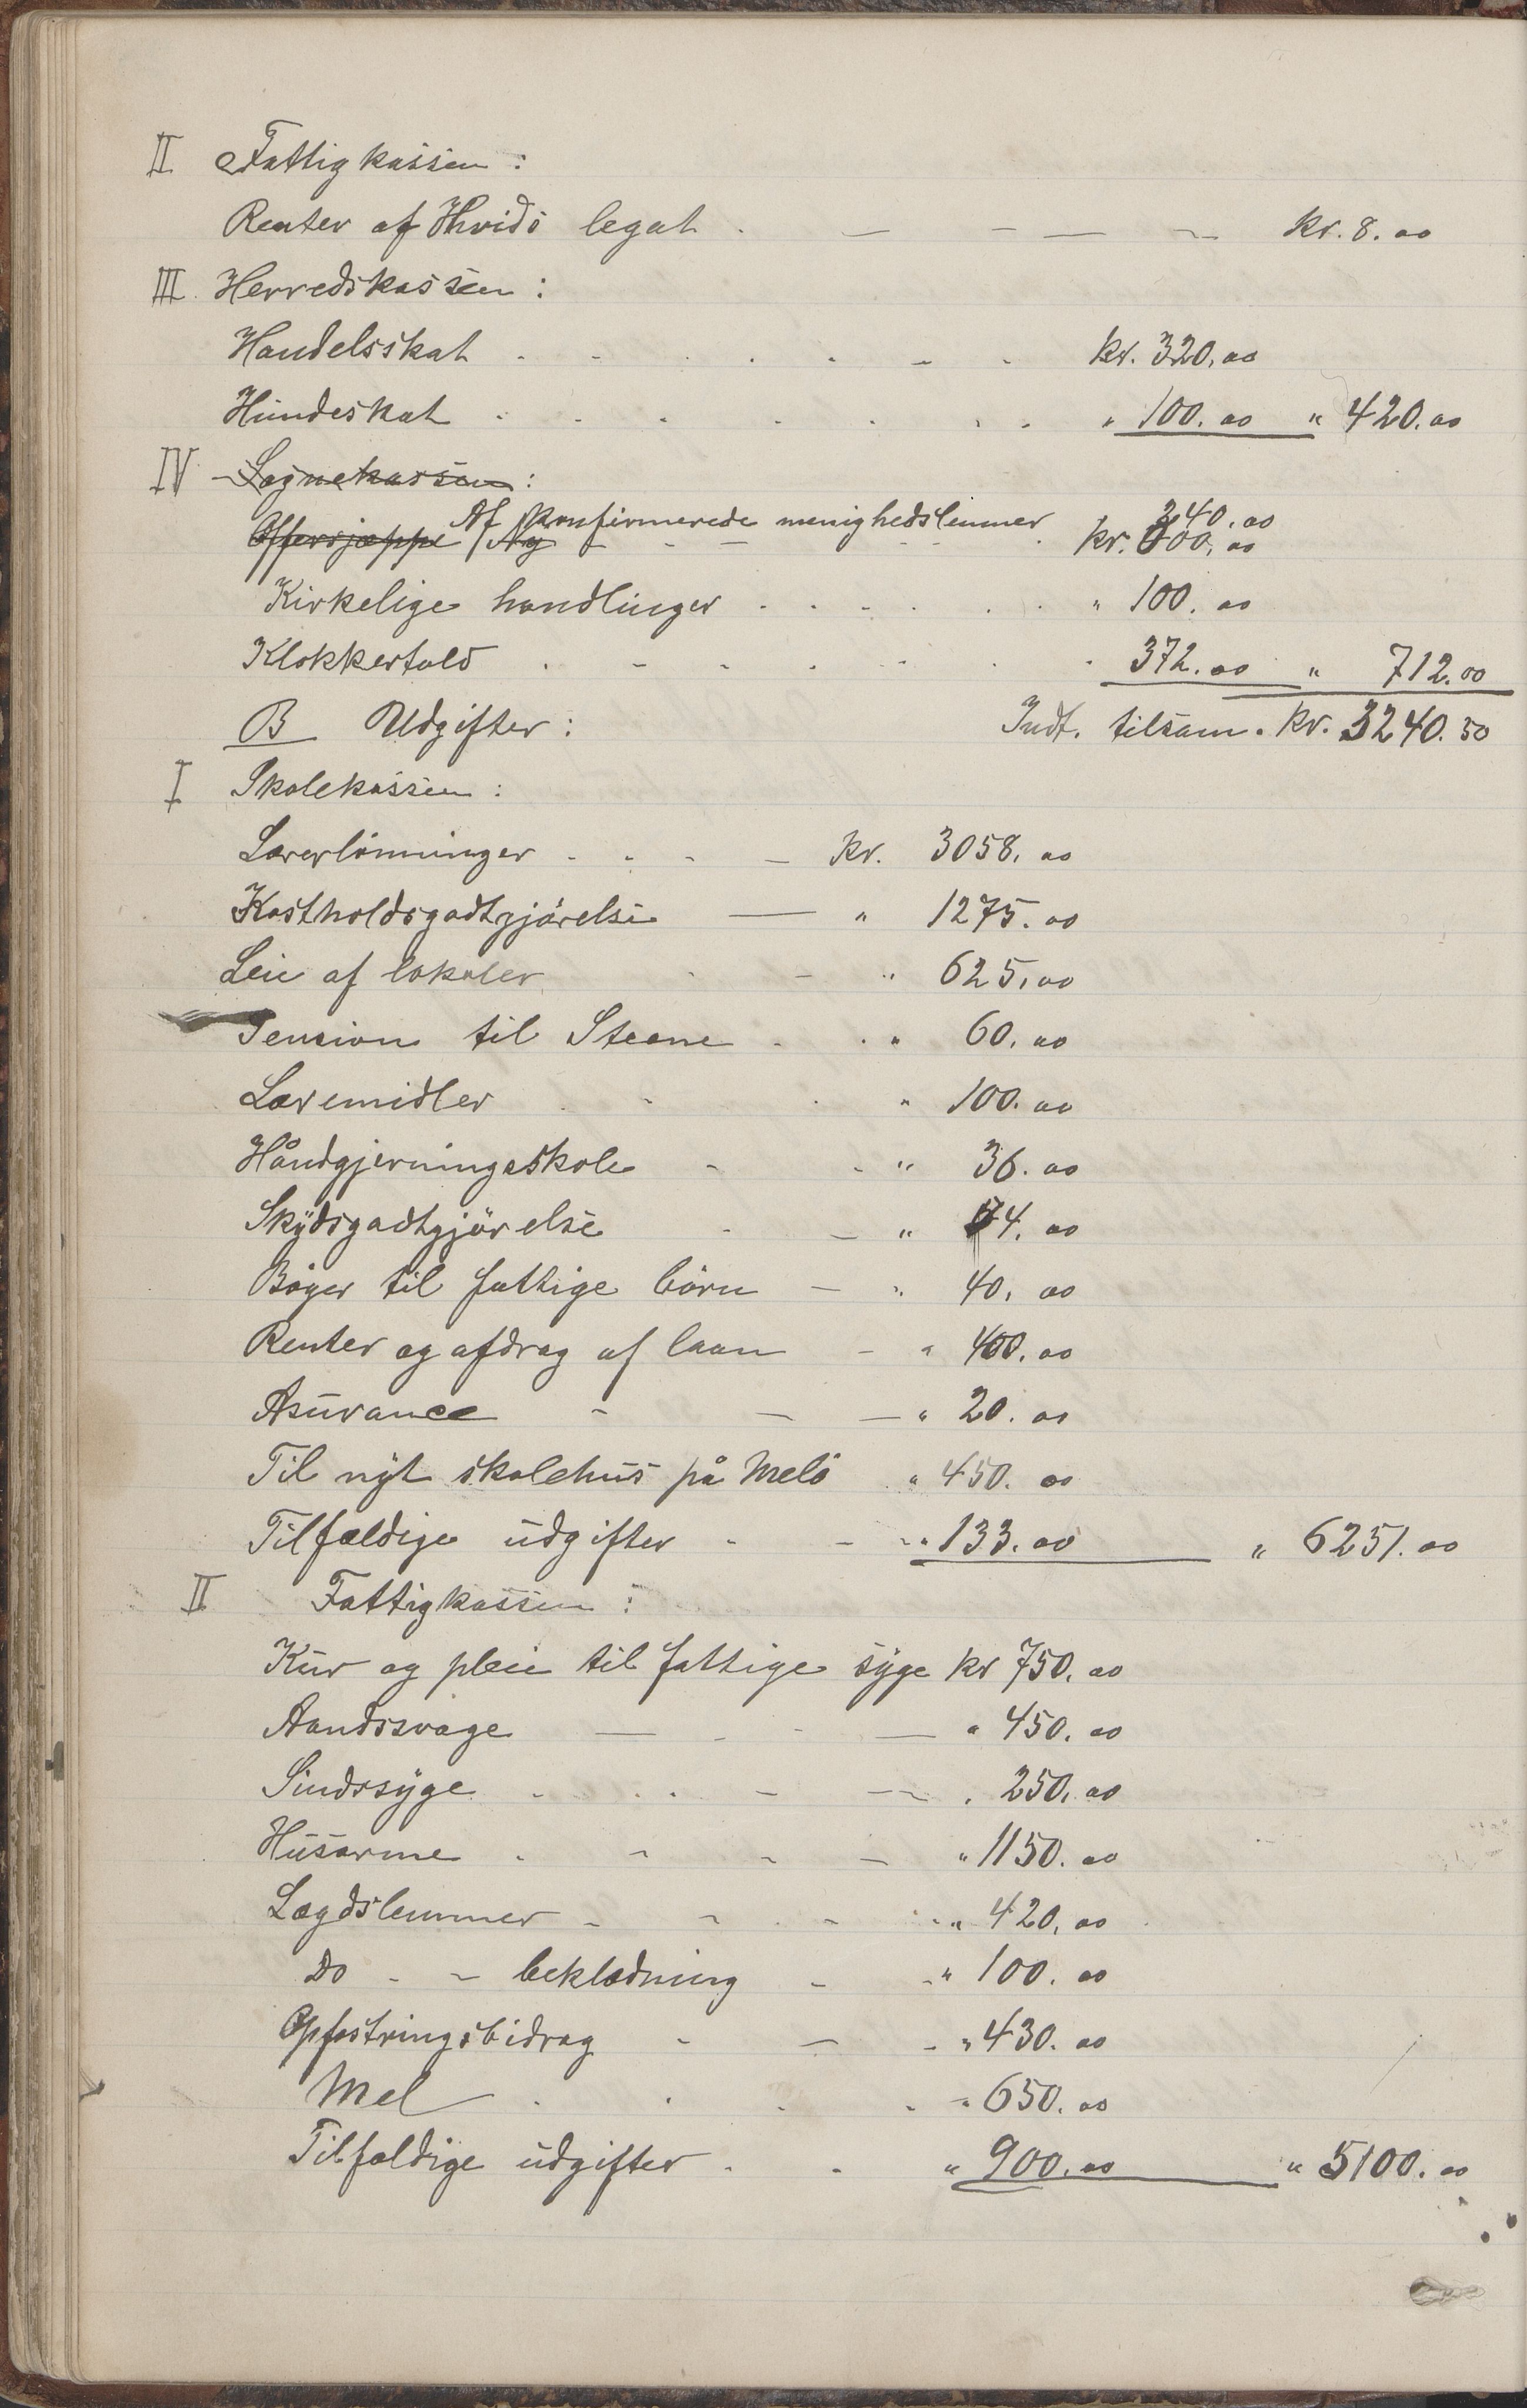 II Fattigkassen:
Renter af Hvids legat . — - — - kr. 8.00
III. Herredskassen:
Handelsskat . . . . . . . kr. 320.00
Hundeskat . . . . . . . " 100.00 " 420.00
IV Sognekassen:
Af konfirmerede menighedslemmer 240.00
Kr. 00
Kirkelige handlinger . . . . . . " 100.00
Klokkertold . . . . . . . 372.00 " 712.00
B Udgifter: Indt. tilsam. kr. 3240.50
I Skolekassen:
Lærerlönninger . . . — Kr. 3058.00
Kostholdsgodtgjörelse — " 1275.00
Leie af lokaler . — " 625.00
Pension til Steane . . " 60.00
Læremidler . . . " 100.00
Håndgjerningsskole - - " 36.00
Skydsgodtgjörelse - — " 74.00
Böger til fattige börn — " 40.00
Renter og afdrag af laan - " 400.00
Asurance - — — " 20.00
Til nyt skolehus på Melö " 450.00
Tilfældige udgifter - - " 133.00 " 6251.00
II Fattigkassen:
Kur og pleie til fattige syge kr 750.00
Aandssvage — - - — " 450.00
Sindssyge . . . - — " 250.00
Husarme . - - — " 1150.00
Lægdslemmer - - - " 420.00
Do - - beklædning - " 100.00
Opfostringsbidrag - — - " 430.00
Mel . . . . " 650.00
Tilfældige udgifter . . " 900.00 " 5100.00